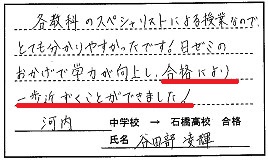 各教科のスペシャリストによる授業なので、
とても分かりやすかったです！日ゼミの
おかげで学力が向上し、合格により
一歩近づくことができました！
河内 中学校 → 石橋高校 合格
氏名 谷田部 凌輝